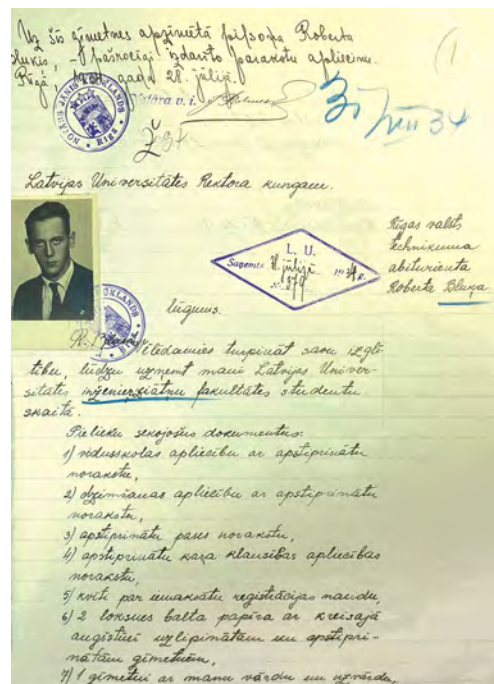 Uz šīs ģīmetnes apzīmētā pilsoņa Roberta
Blukis, pašrocīgi izdarīto parakstu apliecinu.
Rīgā, gada 28. jūlijā.
Notāra v. i.
NOTARS JANIS KOKLANDS
RIGA
34
Latvijas Universitātes Rektora kungam.
L. U.
Saņemts 31. jūlijā 1934 g.
N. 1979
Rīgas valsts
technikuma
abiturienta
Roberta Bluķa
lūgums.
Vēlēdamies turpināt savu izglī-
tību, lūdzu uzņemt mani Latvijas Univer-
sitātes inženierziātņu fakultātes studentu
skaitā.
Pielieku sekojošus dokumentus:
1) vidusskolas apliecību ar apstiprinātu
norakstu,
2) dzimšanas apliecību ar apstiprinātu
norakstu,
3) apstiprinātu pases norakstu,
4) apstiprinātu kara klausības apliecības
norakstu,
5) kvīti par iemaksātu reģistrācijas naudu,
6) 2 loksnes balta papīra ar kreisajā
augšstūrī uzlīpinātām un apstipri-
nātām ģīmetnēm,
7) 1 ģīmetni ar manu vārdu un uzvārdu,